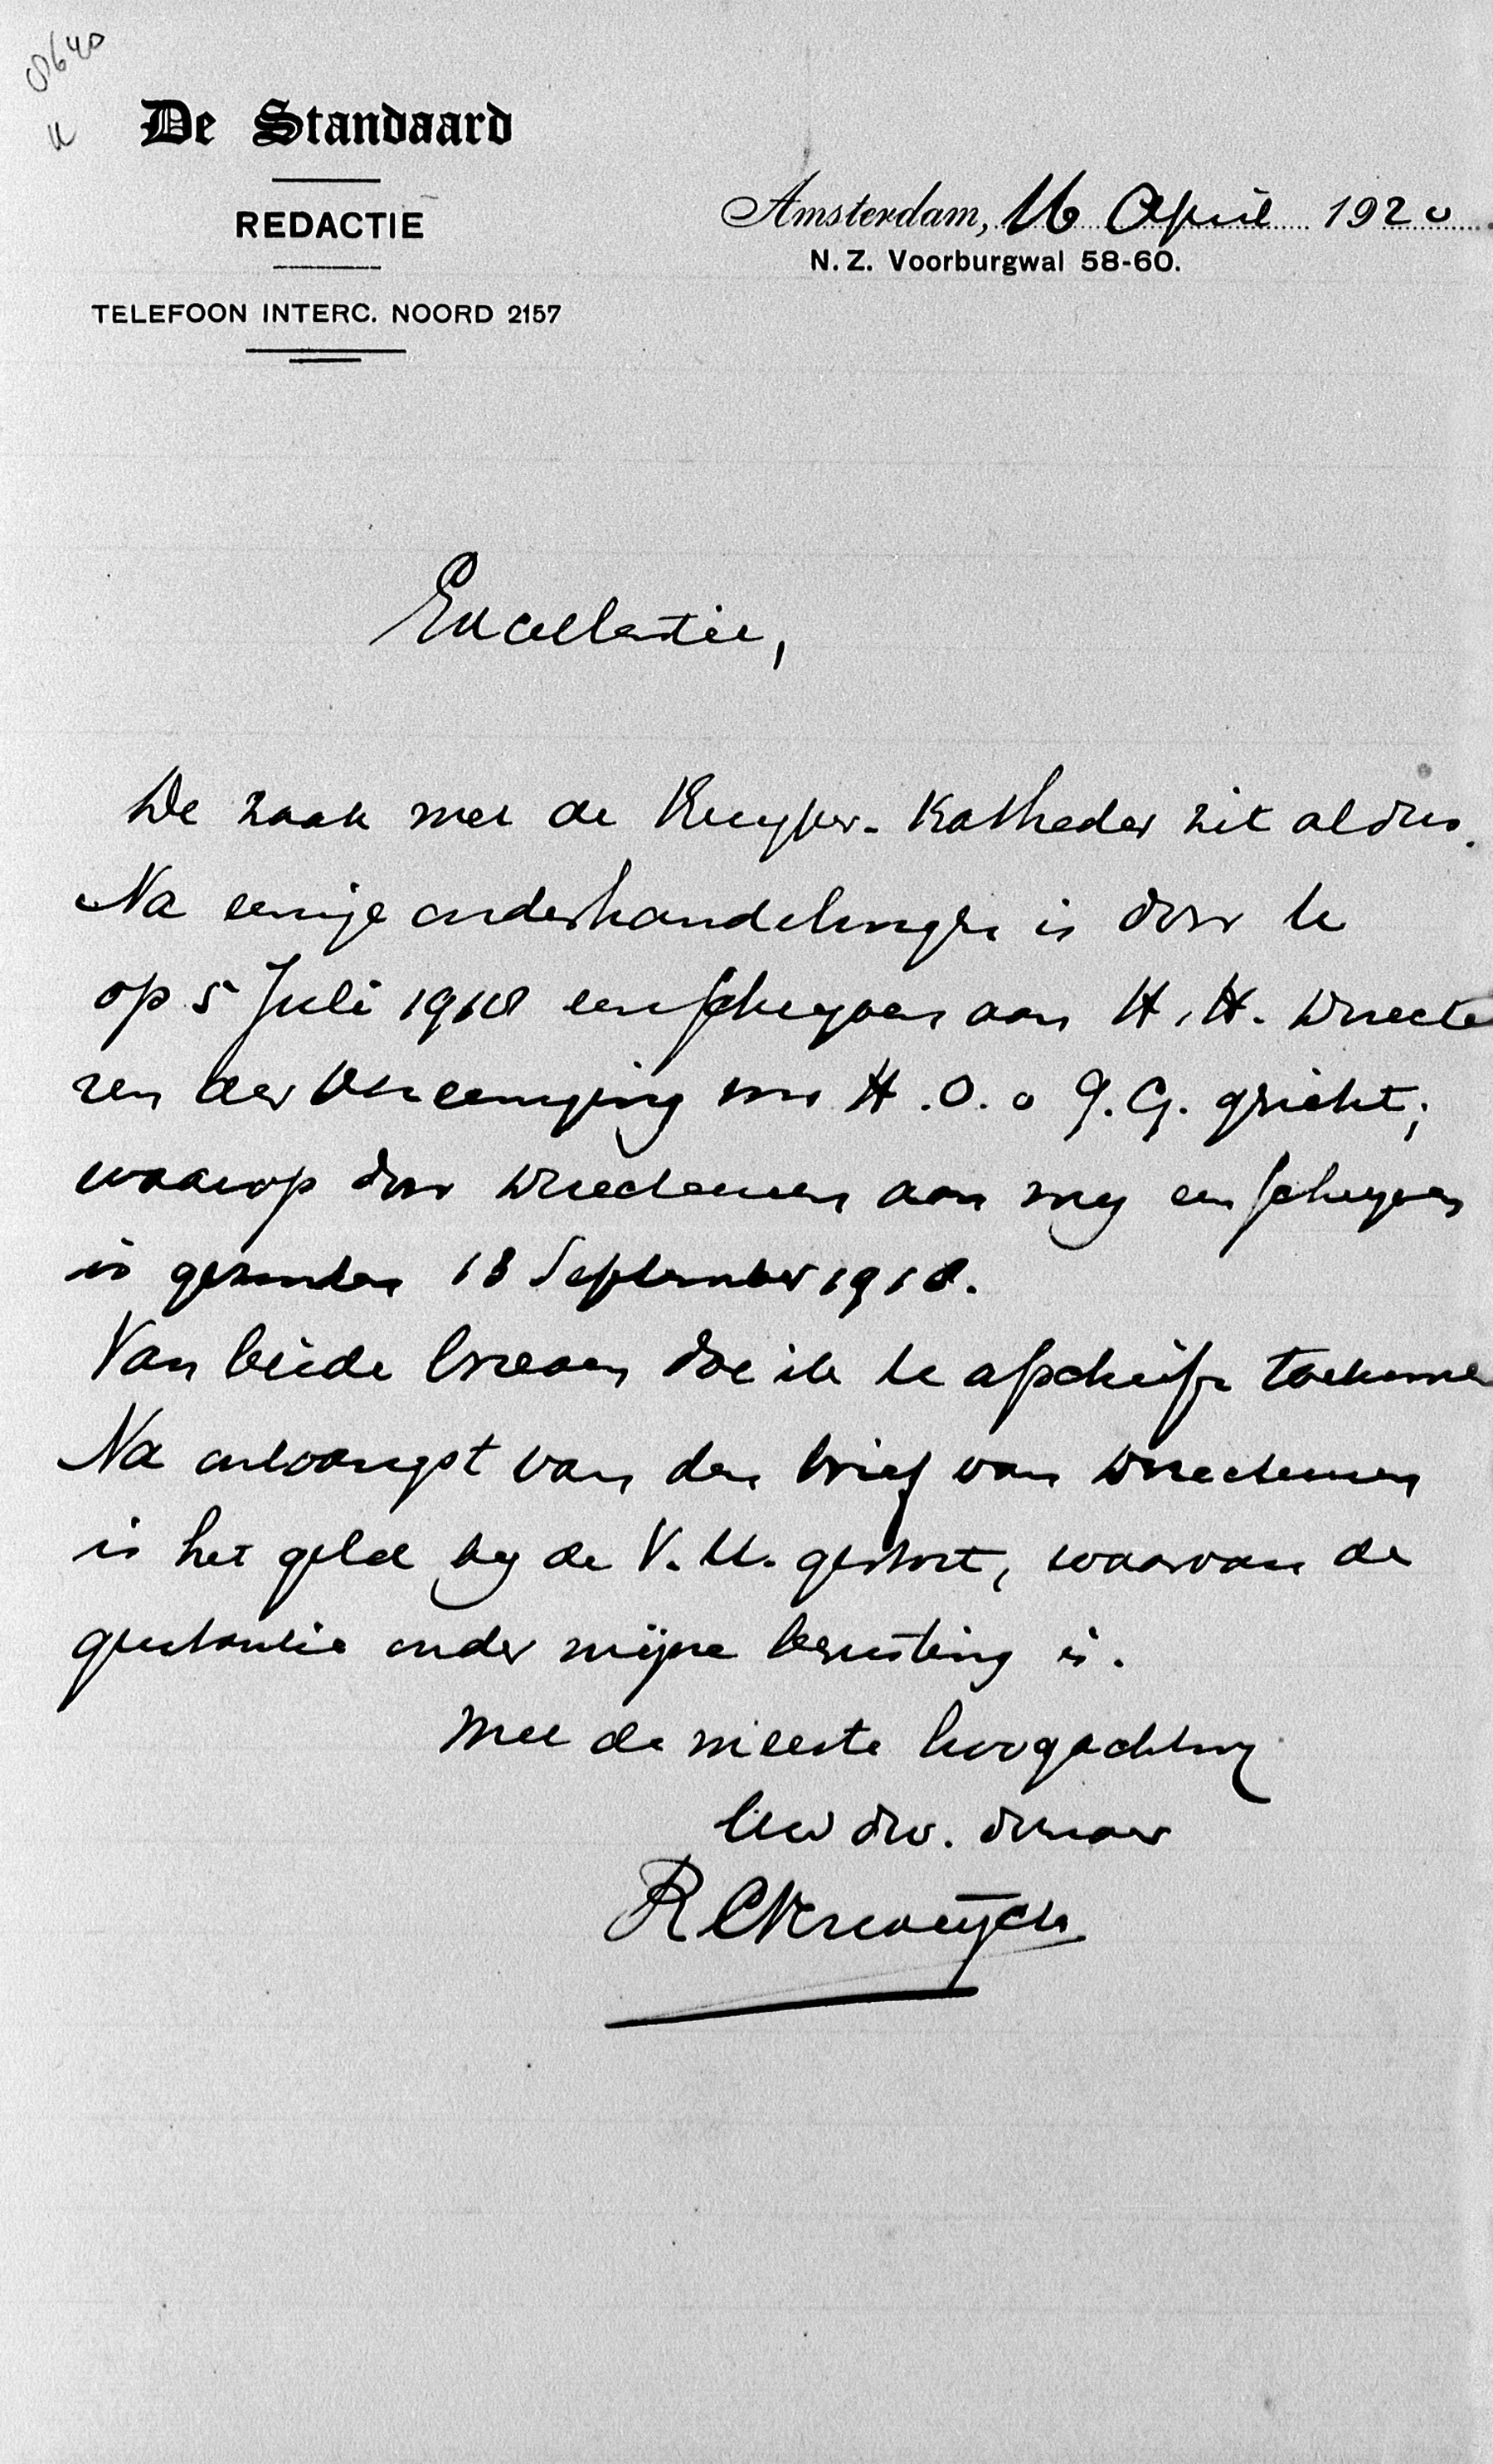 8640
De Standaard
REDACTIE
TELEFOON INTERC. NOORD 2157
Amsterdam, 16 April 1920
N. Z. Voorburgwal 58-60.
Excellentie,
De zaak met de Kuyper-Katheder zit aldus.
Na eenige onderhandelingen is door
op 5 Juli 1918 een schrijven aan H.H. Directeu
ren der Vereeniging voor H.O. o G.G. gericht;
waarop door Directeuren aan mij een schrijven
is gezonden 18 September 1918.
Van beide brieven doe ik U afschrift toekomen
Na ontvangst van den brief van Directeuren
is het geld bij de V.U. gestort, waarvan de
quitantie onder mijne berusting is.
Met de meeste hoogachting
Uw dw. dienaar
R C Verweyck